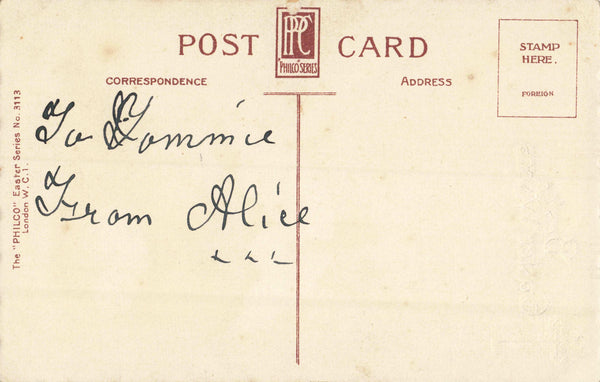 POST CARD
PPC
"PHILCO" SERIES
STAMP
HERE.
FOREIGN
CORRESPONDENCE
ADDRESS
To Tommie
From Alice
x x x
The "PHILCO" Easter Series No. 3113
London W.C.1.